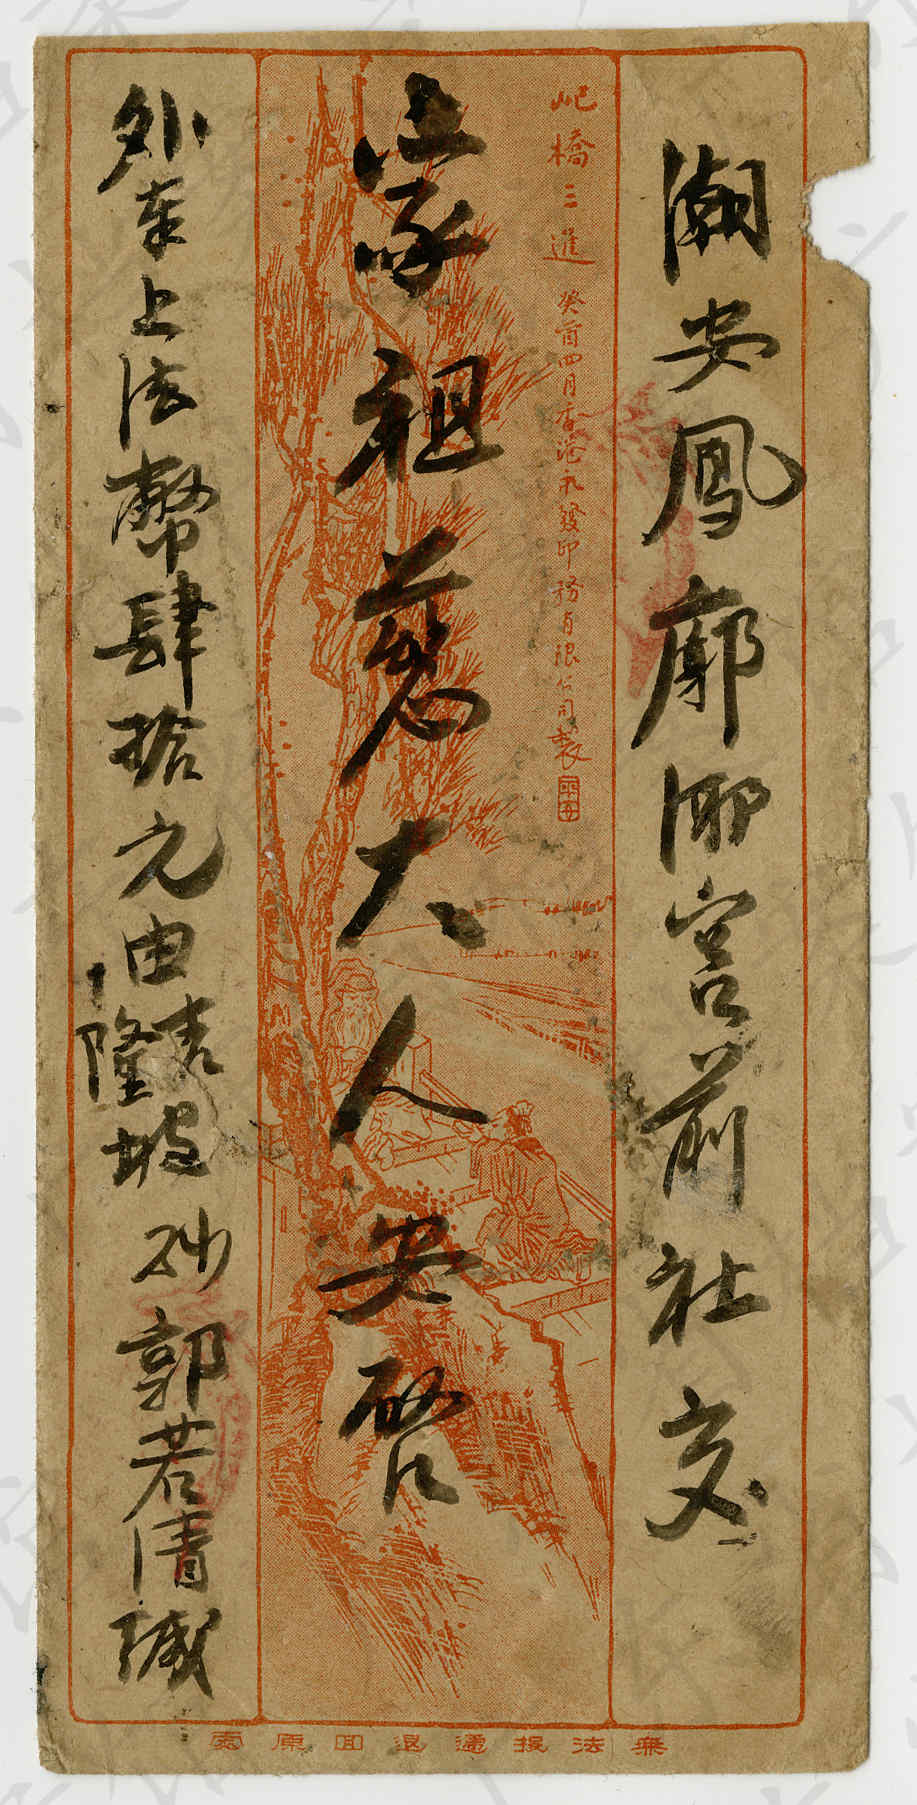 潮安鳳廓䣕宮前社交
圯橋三進 癸酉四月香港永發印務有限公司製
家祖慈大人安啓
外奉上法幣肆拾元由隆坡 郭若清緘
無法投遞退回原處